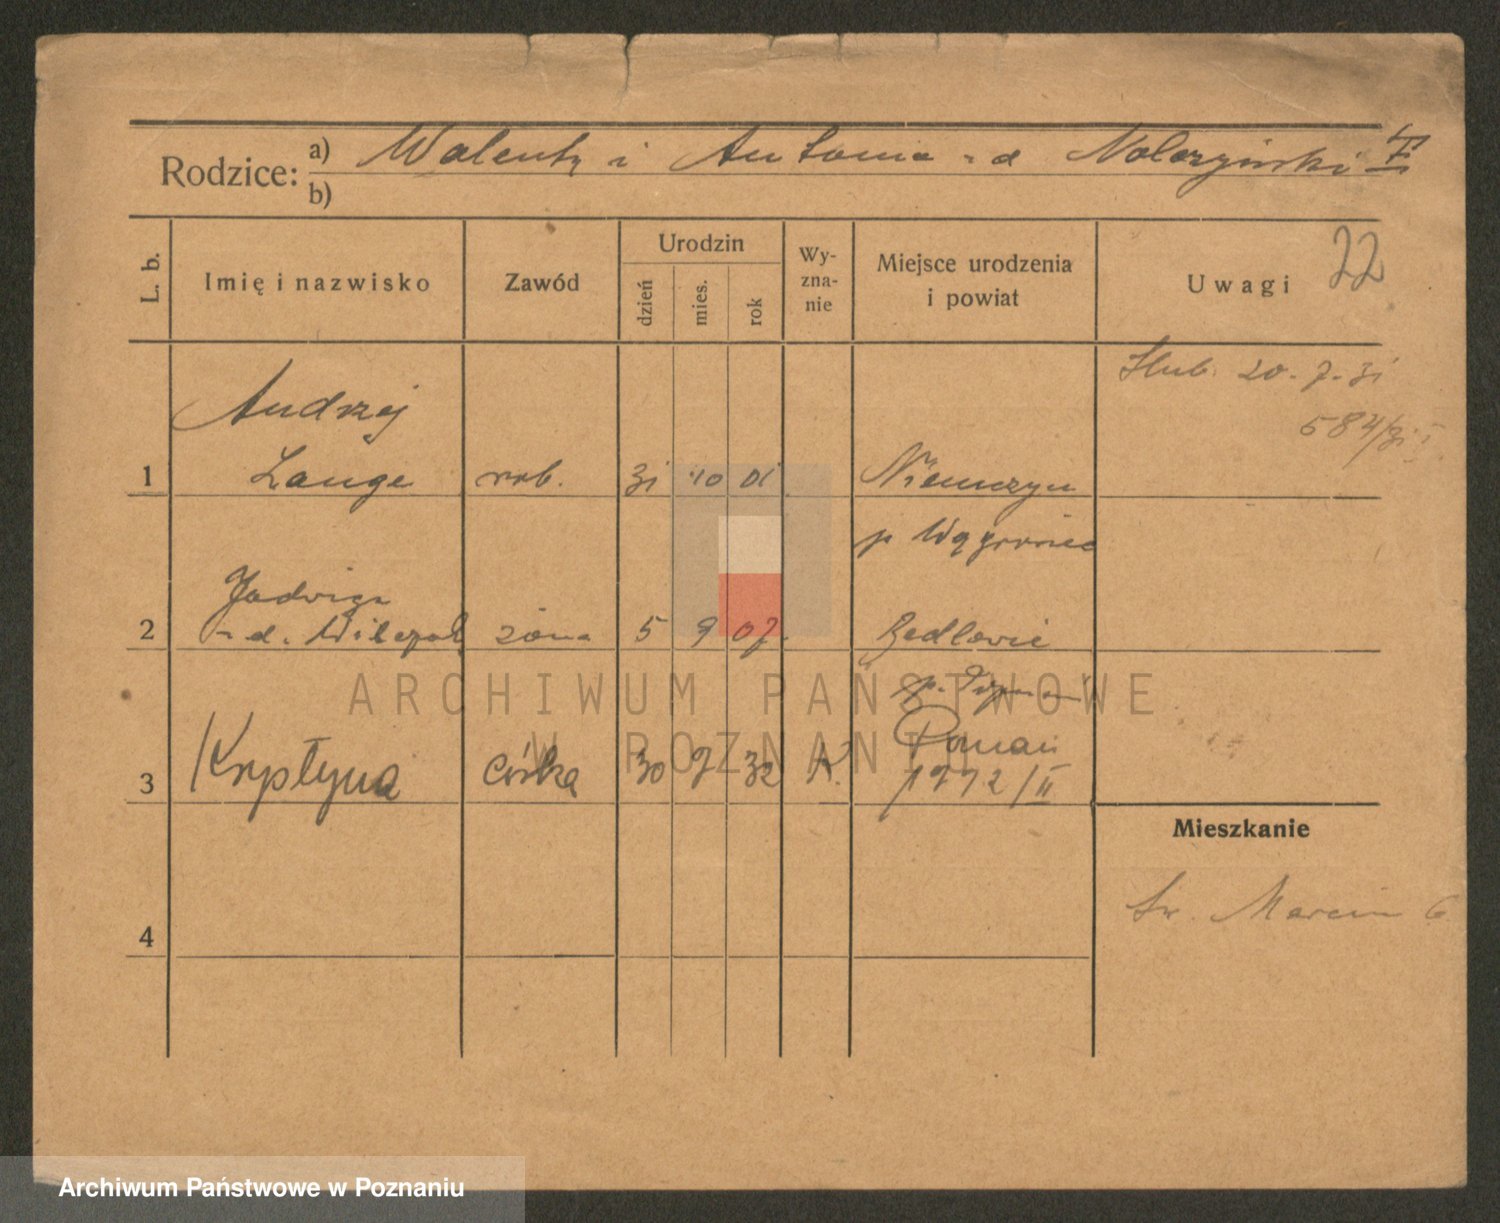 Rodzice: a) Walenty i Antonia z d
b)
L. b.
Imię i nazwisko
Zawód
Urodzin
dzień
mies.
rok
Wy-
zna-
nie
Miejsce urodzenia
i powiat
Uwagi
22
Ślub. 20.7.31
584/31 I
Andrzej
1 Lange rob. 31 10 01 Niemczyn
p Wągrowiec
Jadwiga
2 z d. żona 5 9 07
3 Krystyna córka 30 7 32 k. Poznań
1772/II
4
Mieszkanie
Św. Marcin 6
ARCHIWUM PAŃSTWOWE
W POZNANIU
Archiwum Państwowe w Poznaniu